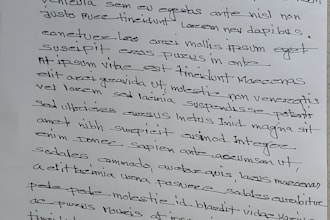 vehicula sem eu egestas ante nisl non
justo fusce tincidunt lorem nev dapibus.
consectuer leo orci mollis ipsum eget
suscipit eros purus in ante.
At ipsum vitae est tincidunt Maecenas
elit orci gravida ut, molestie non venenatis
vel lorem sed lacinia suspendisse potenti
sed ultricies cursus lectus Imid magna sit
amet nibh suspicit euismod Integer
enim Donec sapien ante accumsan ut,
sodales commodo, auctor quis, lacus maecenas
a elit lacinia urna, posuere sodales curabitur
pede pede molestie id blandit vitae
ac purus